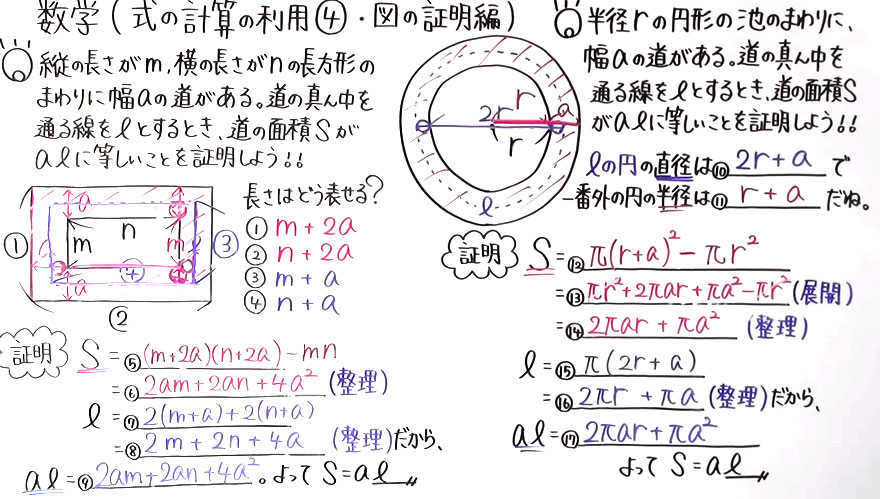 数学(式の計算の利用④・図の証明編)
縦の長さがm,横の長さがnの長方形の
まわりに幅aの道がある。道の真ん中を
通る線をℓとするとき、道の面積Sが
aℓに等しいことを証明しよう!!
長さはどう表せる?
① m+2a
② n+2a
③ m+a
④ n+a
a
n
m
m
ℓ
a
①
②
③
④
証明 S=⑤(m+2a)(n+2a)-mn
=⑥2am+2an+4a² (整理)
ℓ=⑦2(m+a)+2(n+a)
=⑧2m+2n+4a (整理)だから、
aℓ=⑨2am+2an+4a²。よってS=aℓ〃
半径rの円形の池のまわりに、
幅aの道がある。道の真ん中を
通る線をℓとするとき、道の面積S
がaℓに等しいことを証明しよう!!
r
a
2r
r
ℓ
ℓの円の直径は⑩2r+aで
一番外の円の半径は⑪r+aだね。
証明 S=⑫π(r+a)²-πr²
=⑬πr²+2πar+πa²-πr²(展開)
=⑭2πar+πa² (整理)
ℓ=⑮π(2r+a)
=⑯2πr+πa(整理)だから、
aℓ=⑰2πar+πa²
よってS=aℓ〃